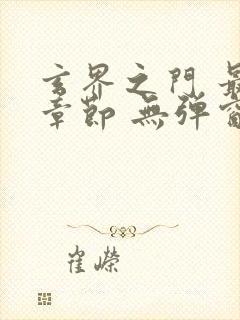 玄界之門 最
章節 無彈窗
崔嶸